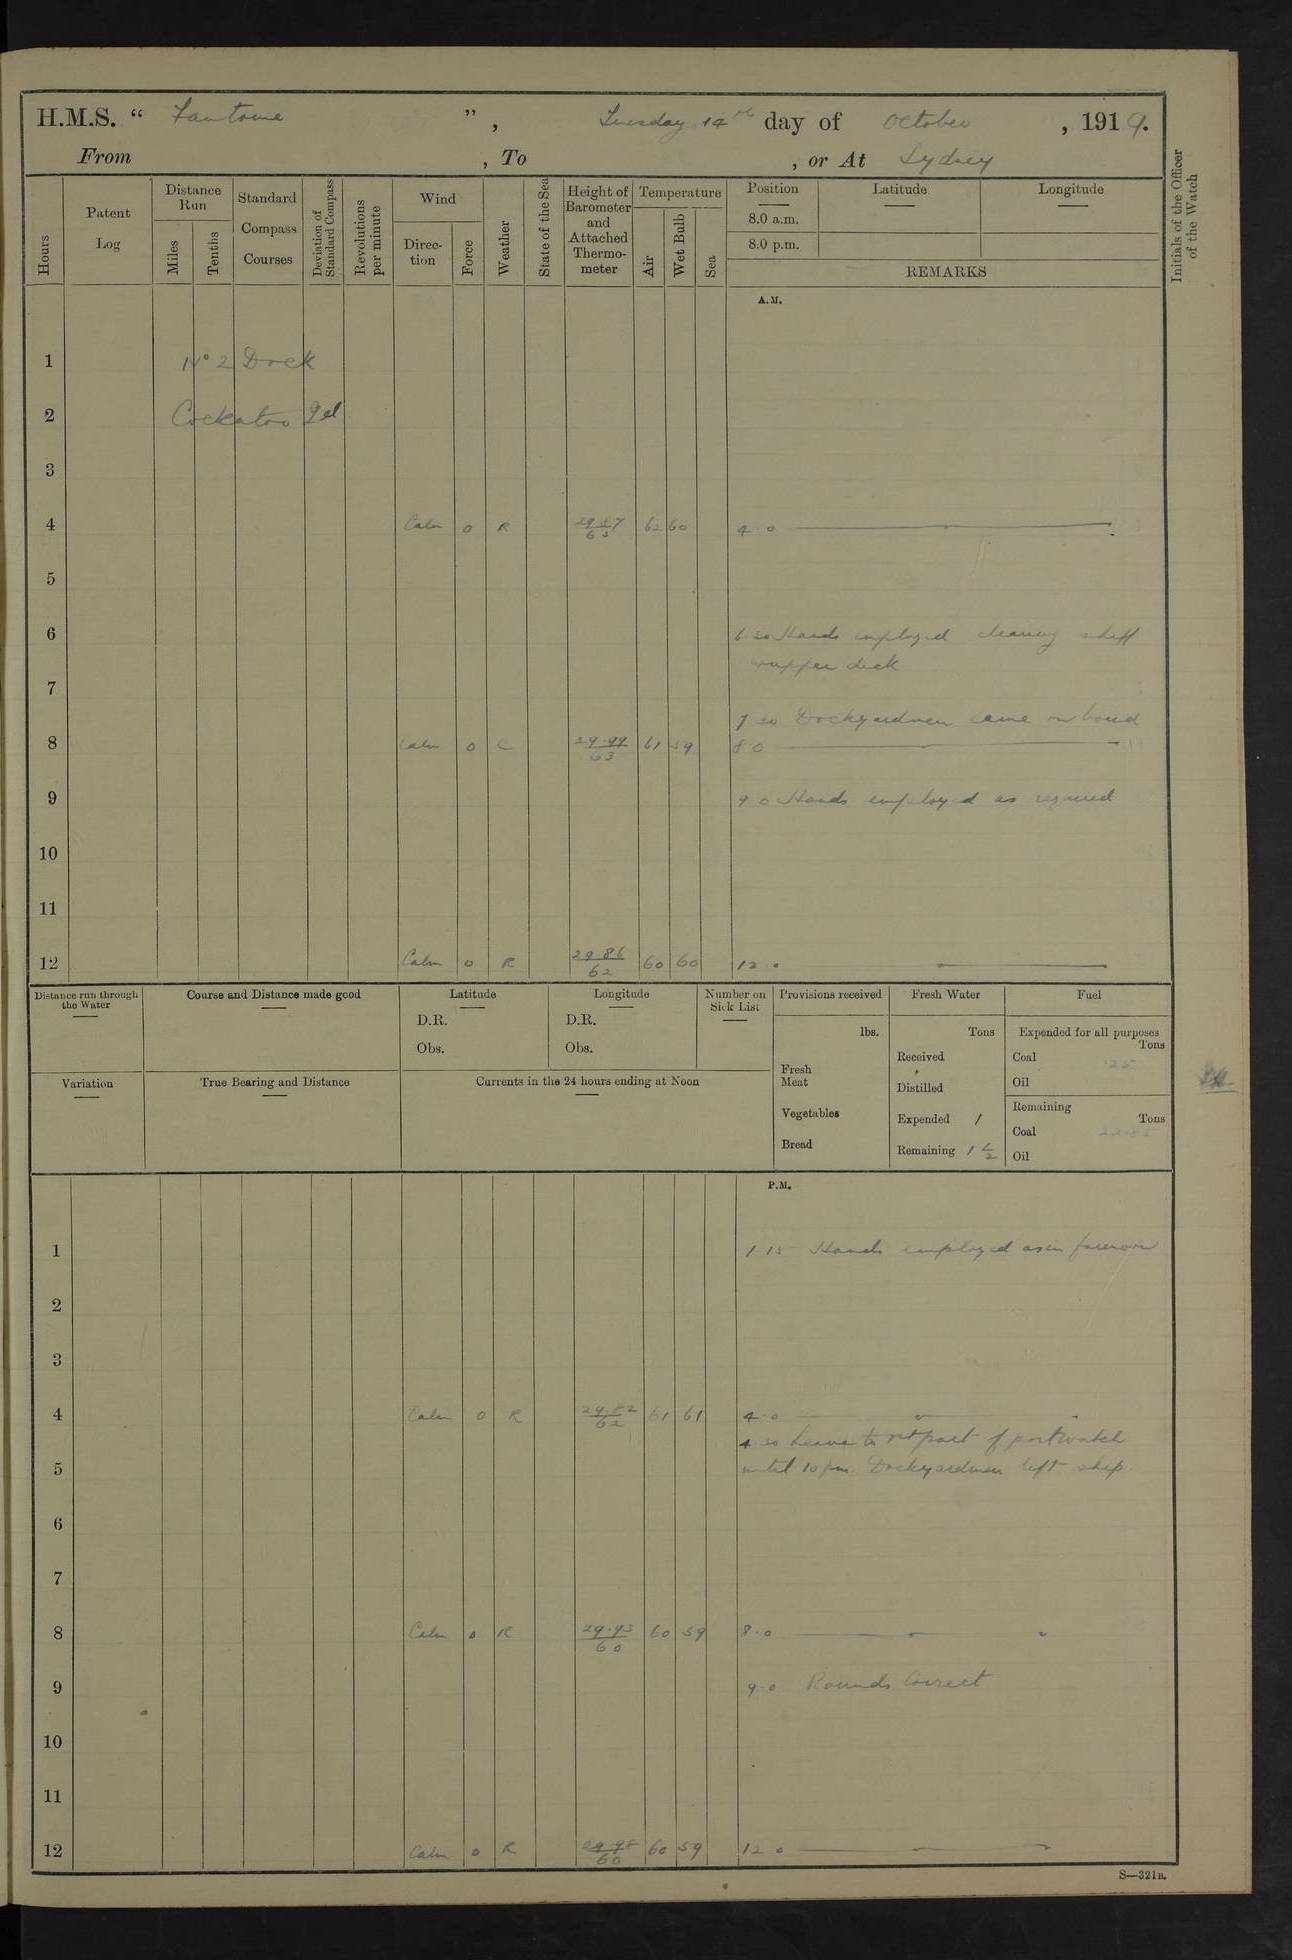 H.M.S. “ Fantome ”, Tuesday 14th day of October, 1919.
From , To , or At Sydney
Hours
Patent Log
Distance Run
Miles
Tenths
Standard Compass Courses
Deviation of Standard Compass
Revolutions per minute
Wind
Direc-tion
Force
Weather
State of the Sea
Height of Barometer and Attached Thermo-meter
Temperature
Air
Wet Bulb
Sea
Position
8.0 a.m.
8.0 p.m.
Latitude
Longitude
REMARKS
Initials of the Officer of the Watch
A.M.
1 No 2 Dock
2 Cockatoo Isd
3
4 Calm 0 R 62 60 4 0
5
6 6 30 Hands employed cleaning ship
upper deck
7
7 30 Dockyardmen came on board
8 Calm 0 C 29.99 63 61 59 8 0
9 9 0 Hands employed as required
10
11
12 Calm 0 R 29.86 62 60 60 12 0
Distance run through the Water
Course and Distance made good
Latitude
D.R.
Obs.
Longitude
D.R.
Obs.
Number on Sick List
Provisions received
lbs.
Fresh Meat
Vegetables
Bread
Fresh Water
Tons
Received
Distilled
Expended 1
Remaining 1 1/2
Fuel
Expended for all purposes
Tons
Coal .25
Oil
Remaining
Tons
Coal
Oil
Variation
True Bearing and Distance
Currents in the 24 hours ending at Noon
P.M.
1 1.15 Hands employed as in forenoon
2
3
4 Calm 0 R 29.82 62 61 61 4.0
4 30 Leave to 1st part of port watch
5 until 10 pm. Dockyardmen left ship.
6
7
8 Calm 0 R 29.93 60 60 59 8.0
9 9.0 Rounds Correct
10
11
12 Calm 0 R 29.98 60 60 59 12 0
S—321B.